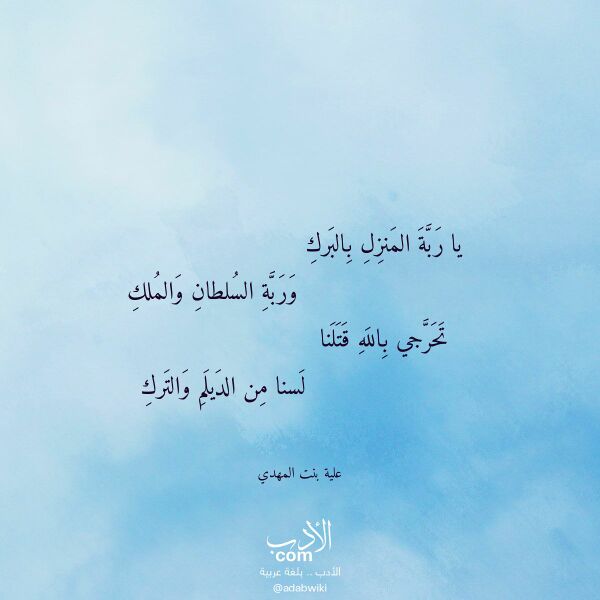 يا رَبَّةَ المَنزِلِ بِالبَركِ
وَرَبَّةِ السُلطانِ وَالمُلكِ
تَحَرَّجي بِاللَهِ قَتَلَنا
لَسنا مِن الدَيلَمِ وَالتَركِ
علية بنت المهدي
الأدب
com
الأدب .. بلغة عربية
@adabwiki